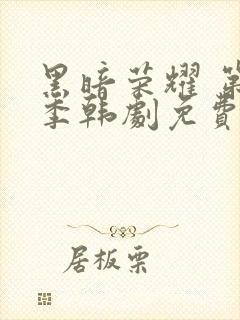 黑暗荣耀 第
季韩劇免費
居板栗